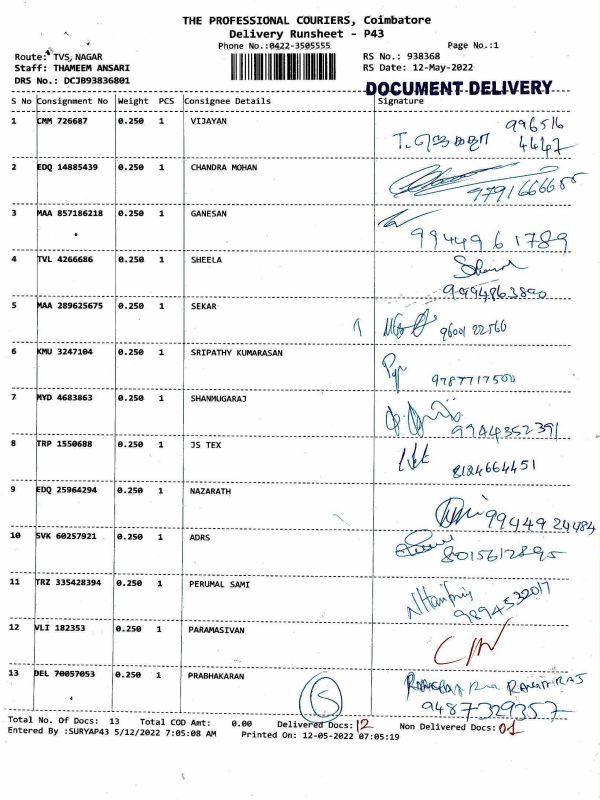 THE PROFESSIONAL COURIERS, Coimbatore
Delivery Runsheet - P43
Phone No.:0422-3505555 Page No.:1
Route: TVS, NAGAR RS No.: 938368
Staff: THAMEEM ANSARI RS Date: 12-May-2022
DRS No.: DCJB93836801
DOCUMENT DELIVERY
S No Consignment No Weight PCS Consignee Details Signature
1 CMM 726687 0.250 1 VIJAYAN 996516
4447
2 EDQ 14885439 0.250 1 CHANDRA MOHAN
3 MAA 857186218 0.250 1 GANESAN 9944961789
4 TVL 4266686 0.250 1 SHEELA
9994863890
5 MAA 289625675 0.250 1 SEKAR 9600122566
6 KMU 3247104 0.250 1 SRIPATHY KUMARASAN
9787717500
7 MYD 4683863 0.250 1 SHANMUGARAJ
9944352391
8 TRP 1550688 0.250 1 JS TEX
8124664451
9 EDQ 25964294 0.250 1 NAZARATH
9944924484
10 SVK 60257921 0.250 1 ADRS
8015612895
11 TRZ 335428394 0.250 1 PERUMAL SAMI
9894532017
12 VLI 182353 0.250 1 PARAMASIVAN
13 DEL 70057053 0.250 1 PRABHAKARAN
9487329357
Total No. Of Docs: 13 Total COD Amt: 0.00 Delivered Docs: 12 Non Delivered Docs: 01
Entered By :SURYAP43 5/12/2022 7:05:08 AM Printed On: 12-05-2022 07:05:19